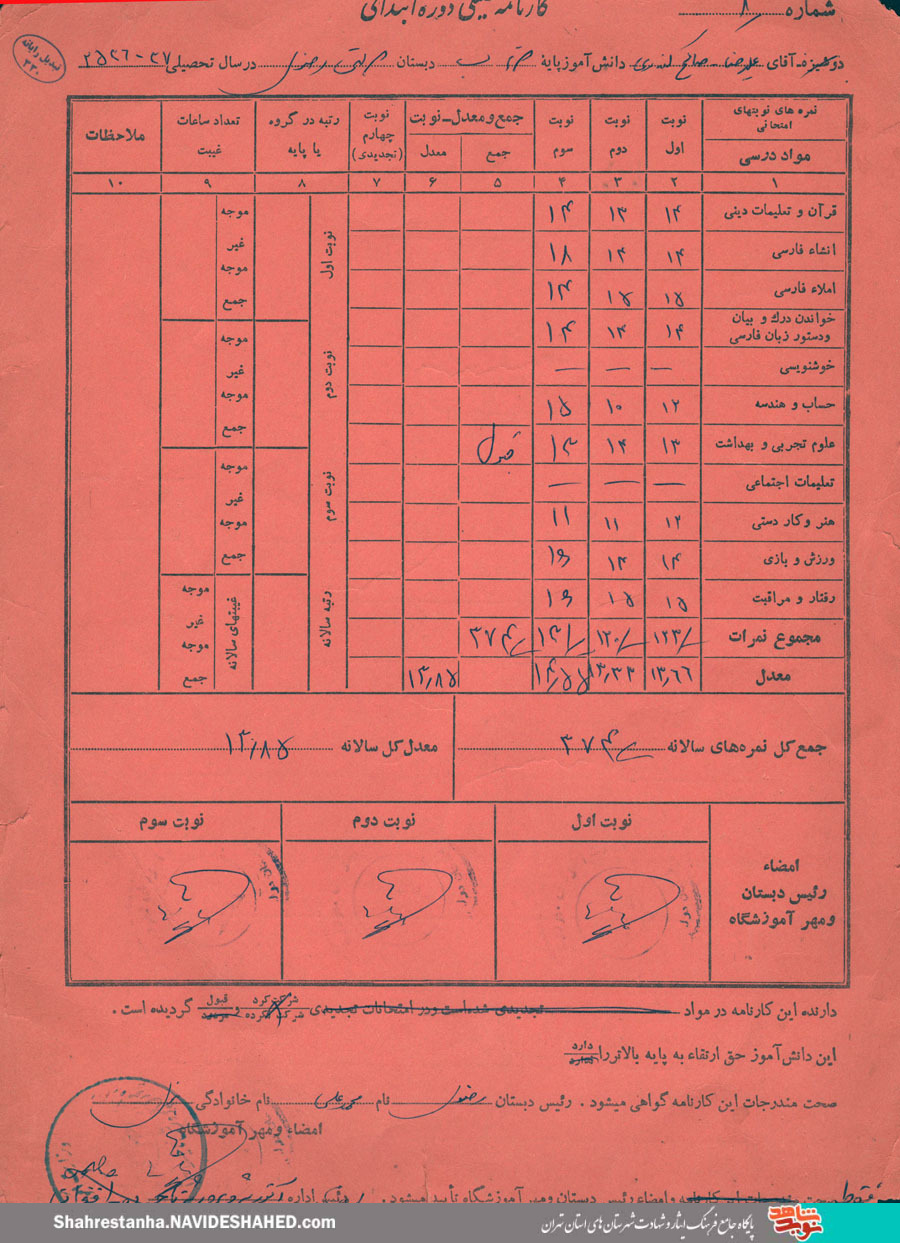 شماره ۸ کارنامه دوره ابتدای
تبدیل رایانه
۲۳۰
دوشیزه آقای علیرضا صالح دانش‌آموز پایه دبستان در سال تحصیلی ۳۷-۲۵۳۶
نمره های نوبتهای امتحانی
مواد درسی
نوبت اول
نوبت دوم
نوبت سوم
جمع و معدل ـ نوبت
جمع معدل
نوبت چهارم (تجدیدی)
رتبه در گروه یا پایه
تعداد ساعات غیبت
ملاحظات
۱ ۲ ۳ ۴ ۵ ۶ ۷ ۸ ۹ ۱۰
قرآن و تعلیمات دینی ۱۴ ۱۳ ۱۴
انشاء فارسی ۱۴ ۱۴ ۱۸
املاء فارسی ۱۵ ۱۵ ۱۴
خواندن درك و بیان ودستور زبان فارسی ۱۴ ۱۴ ۱۴
خوشنویسی — — —
حساب و هندسه ۱۲ ۱۰ ۱۵
علوم تجربی و بهداشت ۱۳ ۱۴ ۱۳ قبول
تعلیمات اجتماعی — — —
هنر و کار دستی ۱۲ ۱۱ ۱۱
ورزش و بازی ۱۴ ۱۴ ۱۶
رفتار و مراقبت ۱۵ ۱۵ ۱۶
مجموع نمرات ۱۲۳/ ۱۲۰/ ۱۳۱/ ۳۷۴/
معدل ۱۳/۶۶ ۱۳/۳۳ ۱۴/۵۵ ۱۳/۸۵
نوبت اول
نوبت دوم
نوبت سوم
رتبه سالانه
موجه
غیر موجه
جمع
موجه
غیر موجه
جمع
موجه
غیر موجه
جمع
غیبتهای سالانه
موجه
غیر موجه
جمع
جمع کل نمره‌های سالانه ۳۷۴/ معدل کل سالانه ۱۳/۸۵
امضاء رئیس دبستان ومهر آموزشگاه
نوبت اول نوبت دوم نوبت سوم
دارنده این کارنامه در مواد تجدیدی شده است و در امتحانات تجدیدی شرکت کرده شرکت نکرده و قبول مردود گردیده است .
این دانش‌آموز حق ارتقاء به پایه بالاتررا دارد ندارد
صحت مندرجات این کارنامه گواهی میشود . رئیس دبستان رضوی نام نام خانوادگی
امضاء ومهر آموزشگاه
صحت مندرجات این کارنامه وامضاء رئیس دبستان ومهر آموزشگاه تأیید میشود . رئیس اداره
Shahrestanha.NAVIDESHAHED.com
پایگاه جامع فرهنگ ایثار و شهادت شهرستان های استان تهران
نوید شاهد